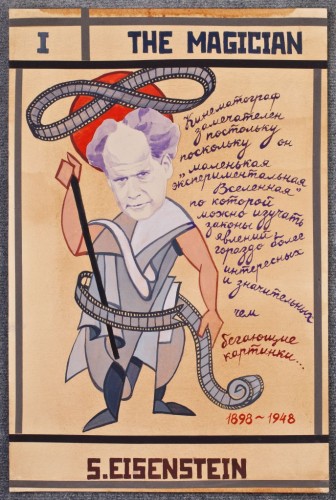 I THE MAGICIAN
Кинематограф
замечателен
постольку
поскольку он
„маленькая
экспериментальная
Вселенная"
по которой
можно изучать
законы
явлений
гораздо более
интересных
и значительных
чем
бегающие
картинки...
1898~1948
S.EISENSTEIN